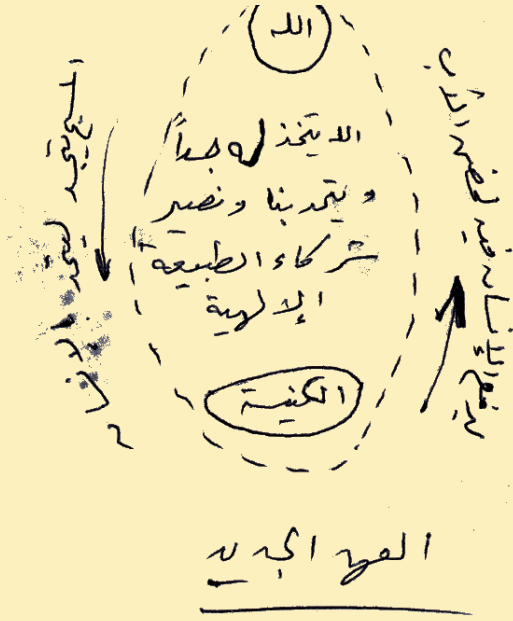 الله
الابن يتخذ له جسداً
ويتحد بنا ونصير
شركاء الطبيعة
الإلهية
الكنيسة
المسيح يتجسد ليتحد بالإنسان
ليرفع الإنسان فيه لحضن الآب
العهد الجديد